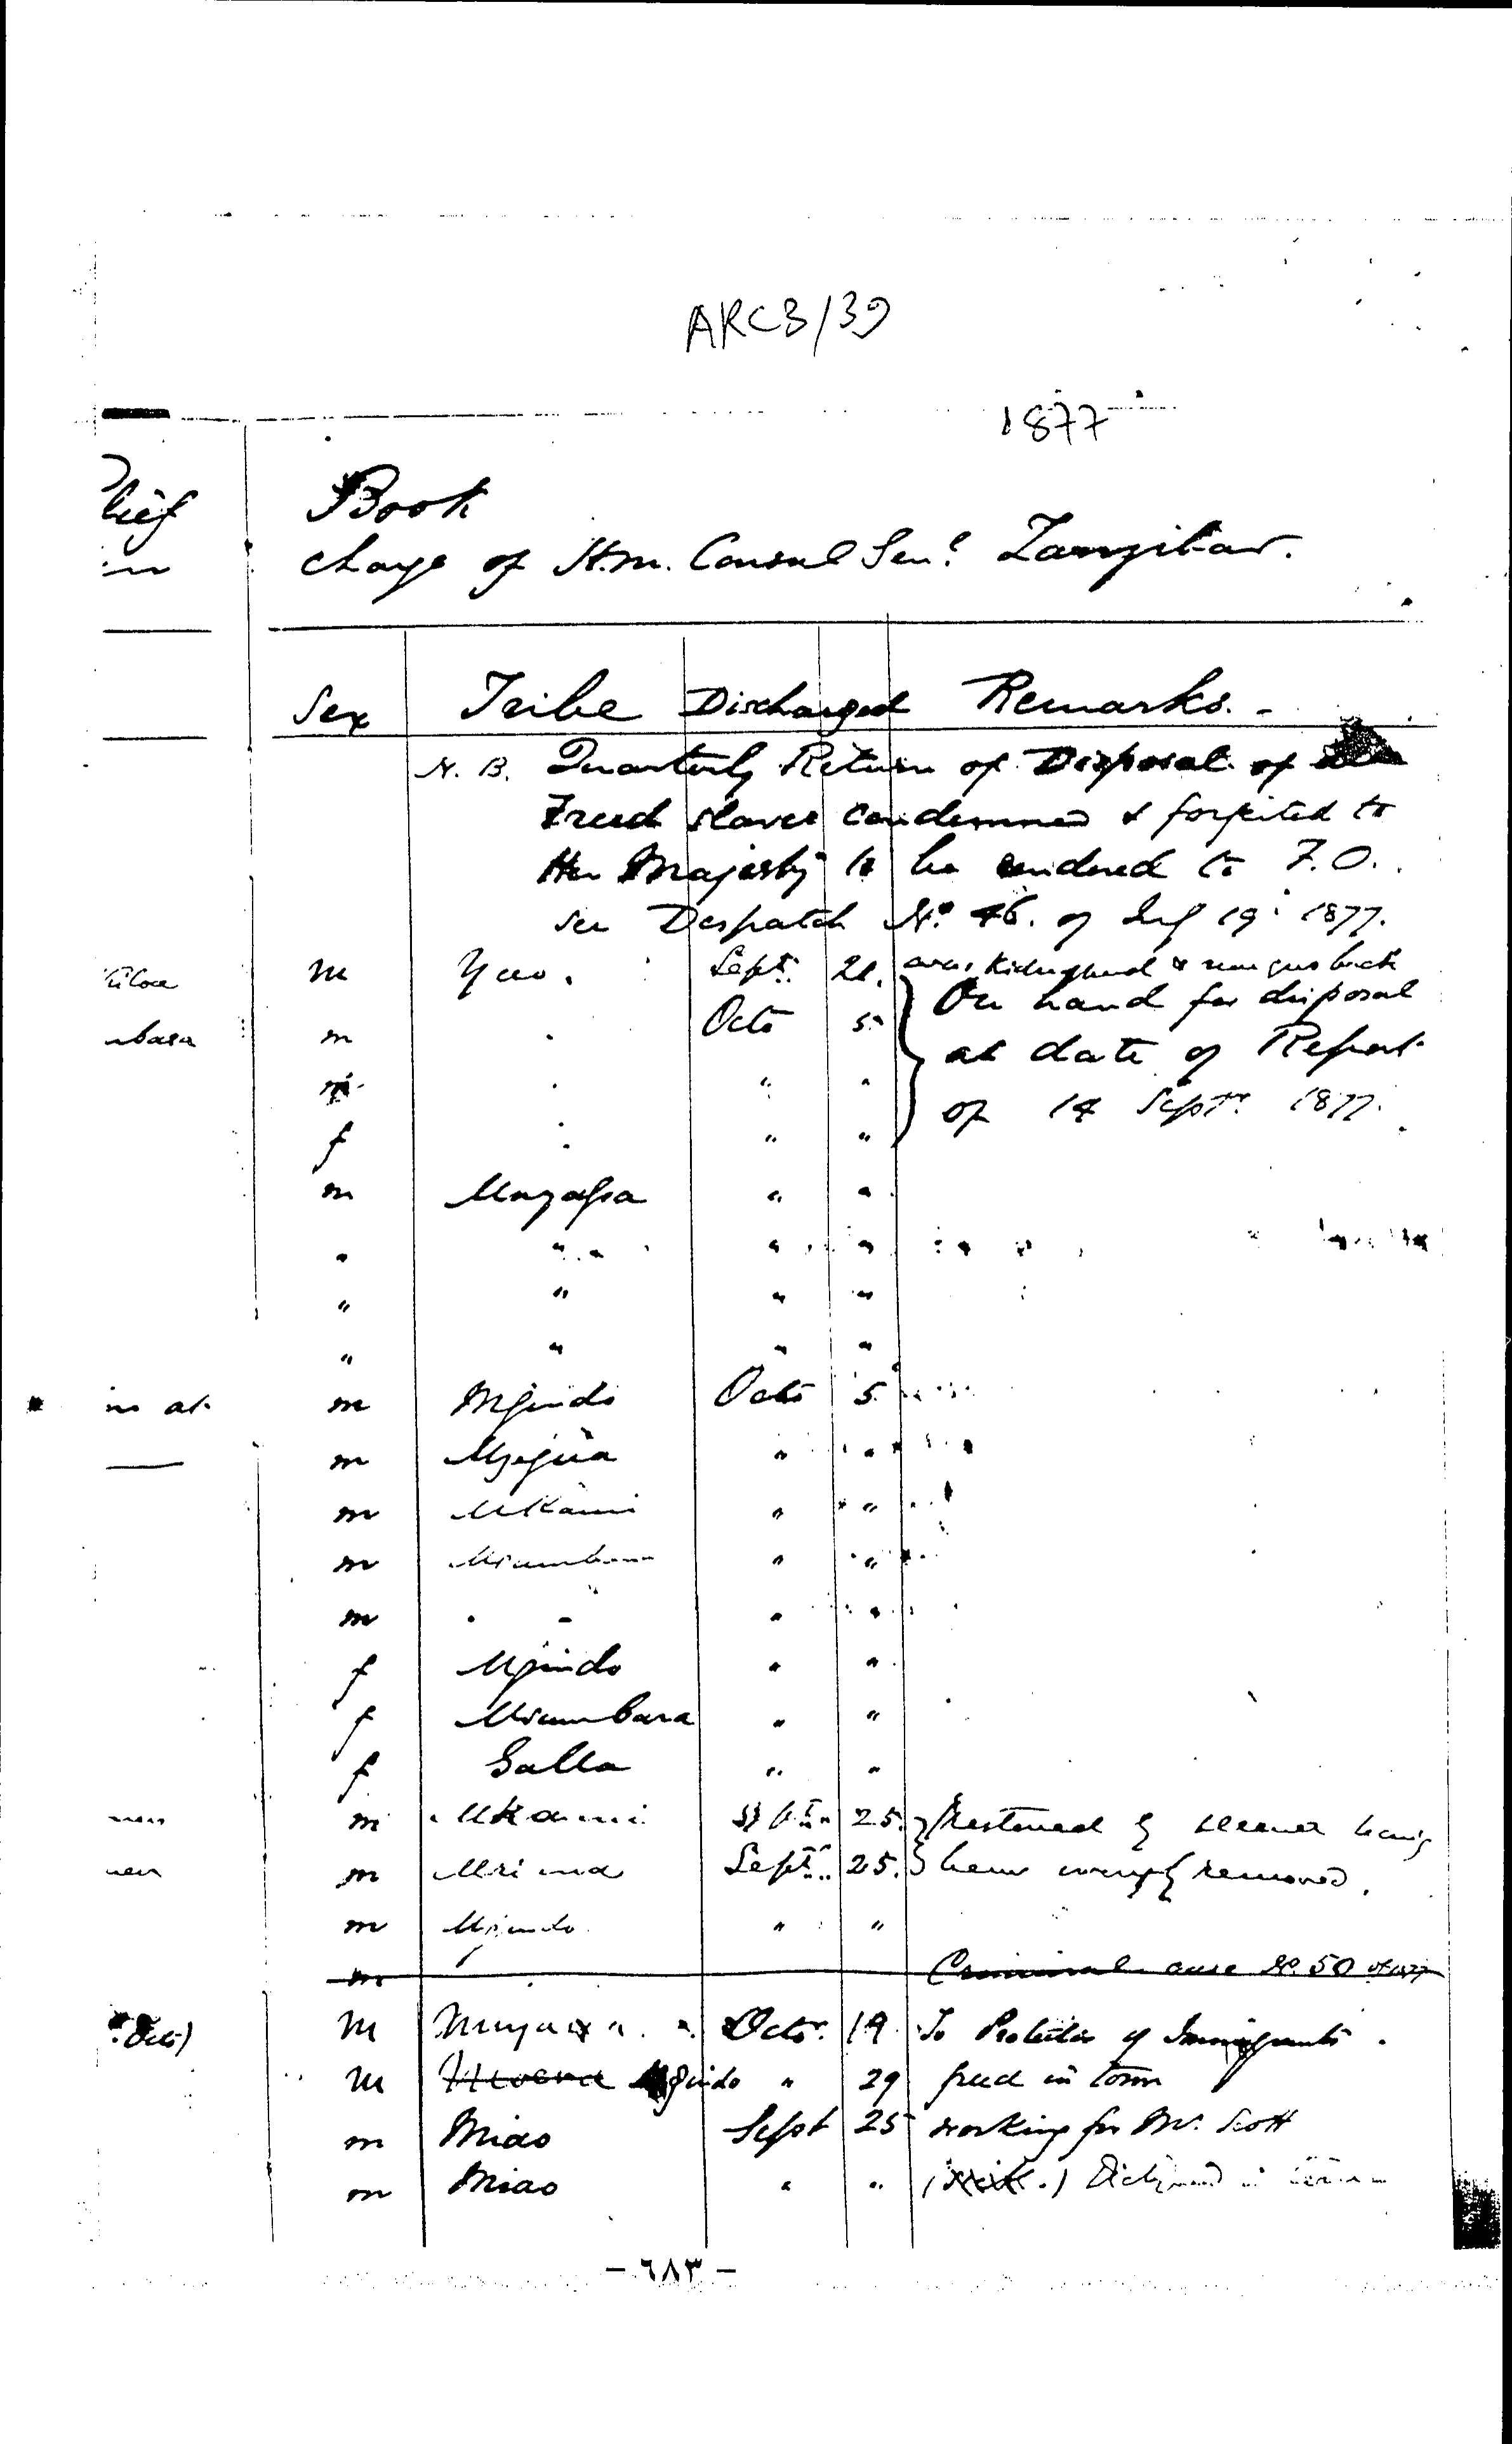 ARC3/39
1877
lief Book
in charge of H.M. Consul Genl Zanzibar.
Sex Tribe Discharged Remarks. -
N.B. Quarterly Return of Disposal of
Freed slaves condemned & forfeited to
Her Majesty to be rendered to F.O.
see Despatch No. 46. of 19 1877.
m Yao. Sept. 21. was Kidnapped &
m Octo 5 On hand for disposal
m " " at date of Report
f " " of 14 Septr. 1877.
m Mnyassa " "
" " " "
" " " "
" " " "
ns at m Mgindo Octo 5
m Mzegua " "
m Mkami " "
m Msumbara " "
m " " "
f Mgindo " "
f Msumbara " "
f Galla " "
m Mkami 25. Restored having
m Mrima Septr. 25. been removed.
m Mgindo " "
m Criminal case No. 50 of 1877
Octo) m Mnyassa Octr. 19 To Protector of Immigrants.
m Mgindo " 29 freed in town
m Miao Sept 25 working for Mr. Scott
m Miao " "
- ٦٨٣ -